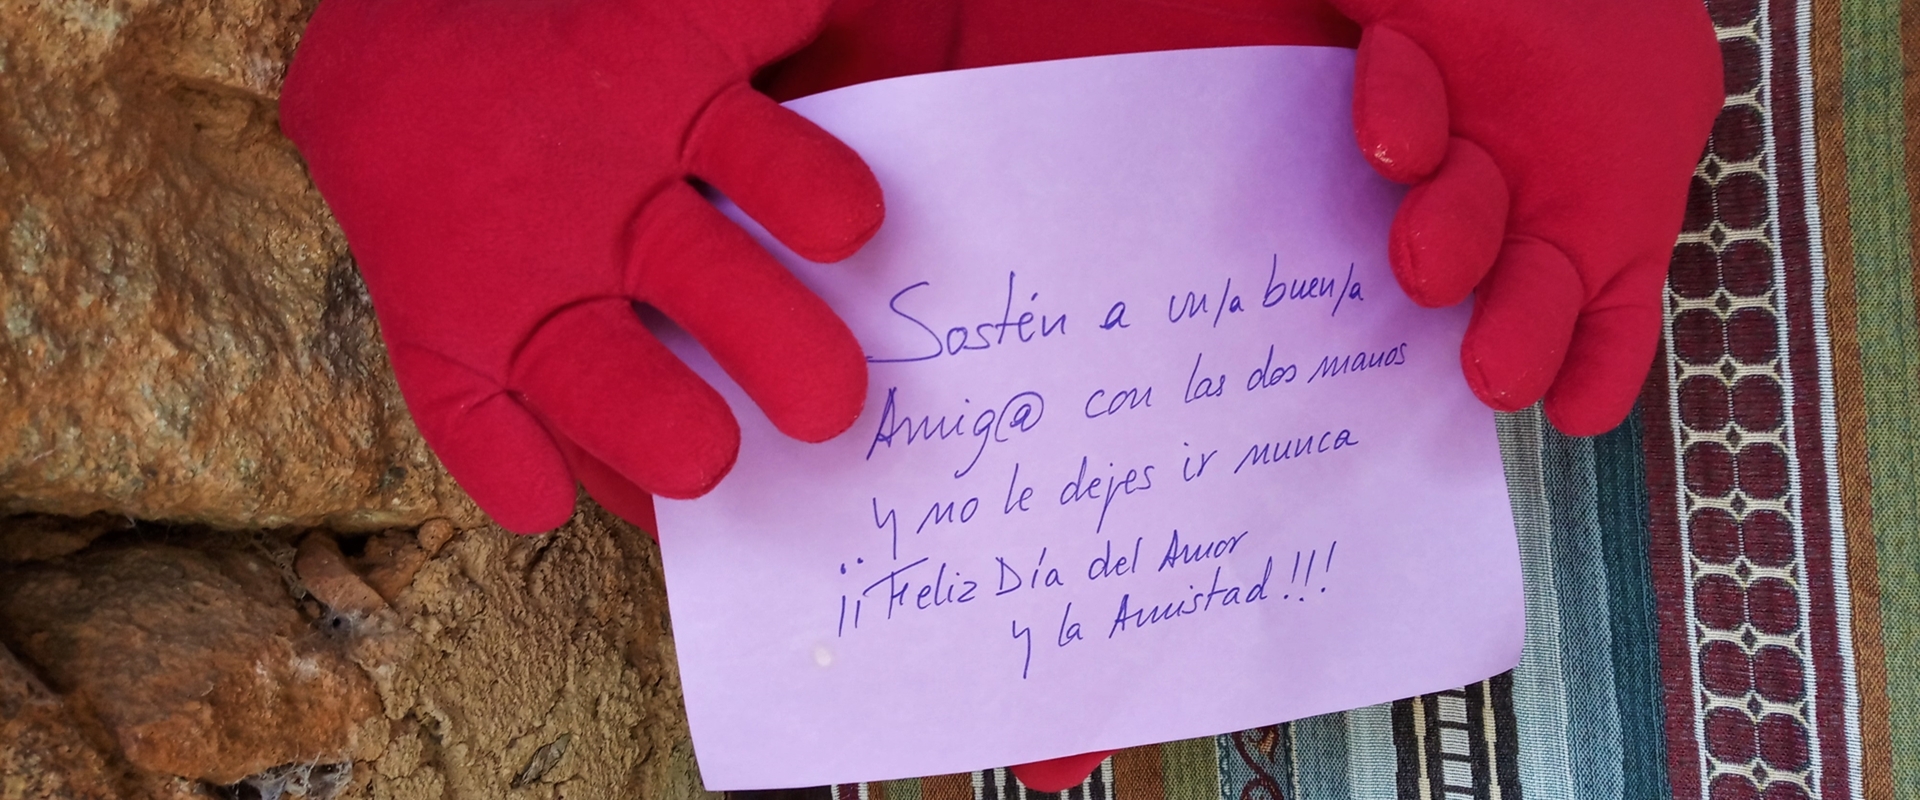 Sostén a un/a buen/a
Amig@ con las dos manos
y no le dejes ir nunca
..
¡¡Feliz Día del Amor
y la Amistad!!!